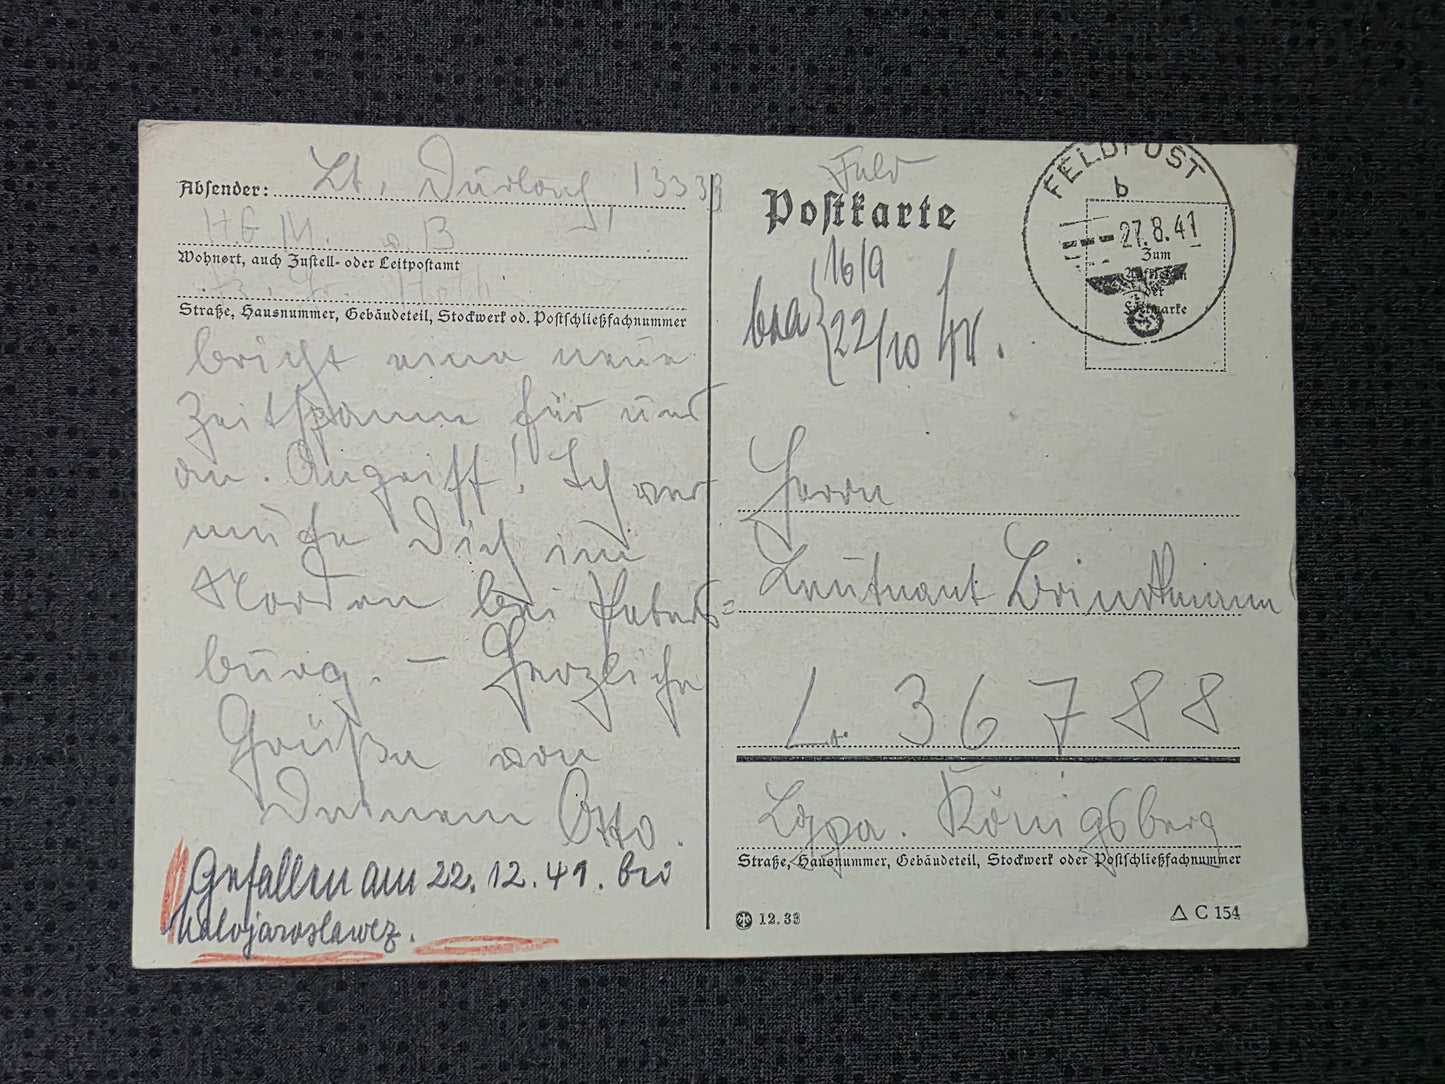 Absender: Lt. Durlong, 13338
Wohnort, auch Zustell- oder Leitpostamt
Straße, Hausnummer, Gebäudeteil, Stockwerk od. Postschließfachnummer
bricht eine neue
Zeitspanne für uns
an. Angriff! Ich ver
mute Dich im
Norden bei Peters=
burg. – Herzliche
Grüße von
Deinem Otto.
Gefallen am 22.12.41. bei
Malojaroslawez.
Feld
Postkarte
FELDPOST
b
27.8.41
Zum
Aufkleben
der
Freimarke
16/9
22/10
Herrn
Leutnant Brindtmann
L. 36788
Lgpa. Königsberg
Straße, Hausnummer, Gebäudeteil, Stockwerk oder Postschließfachnummer
12.39
C 154